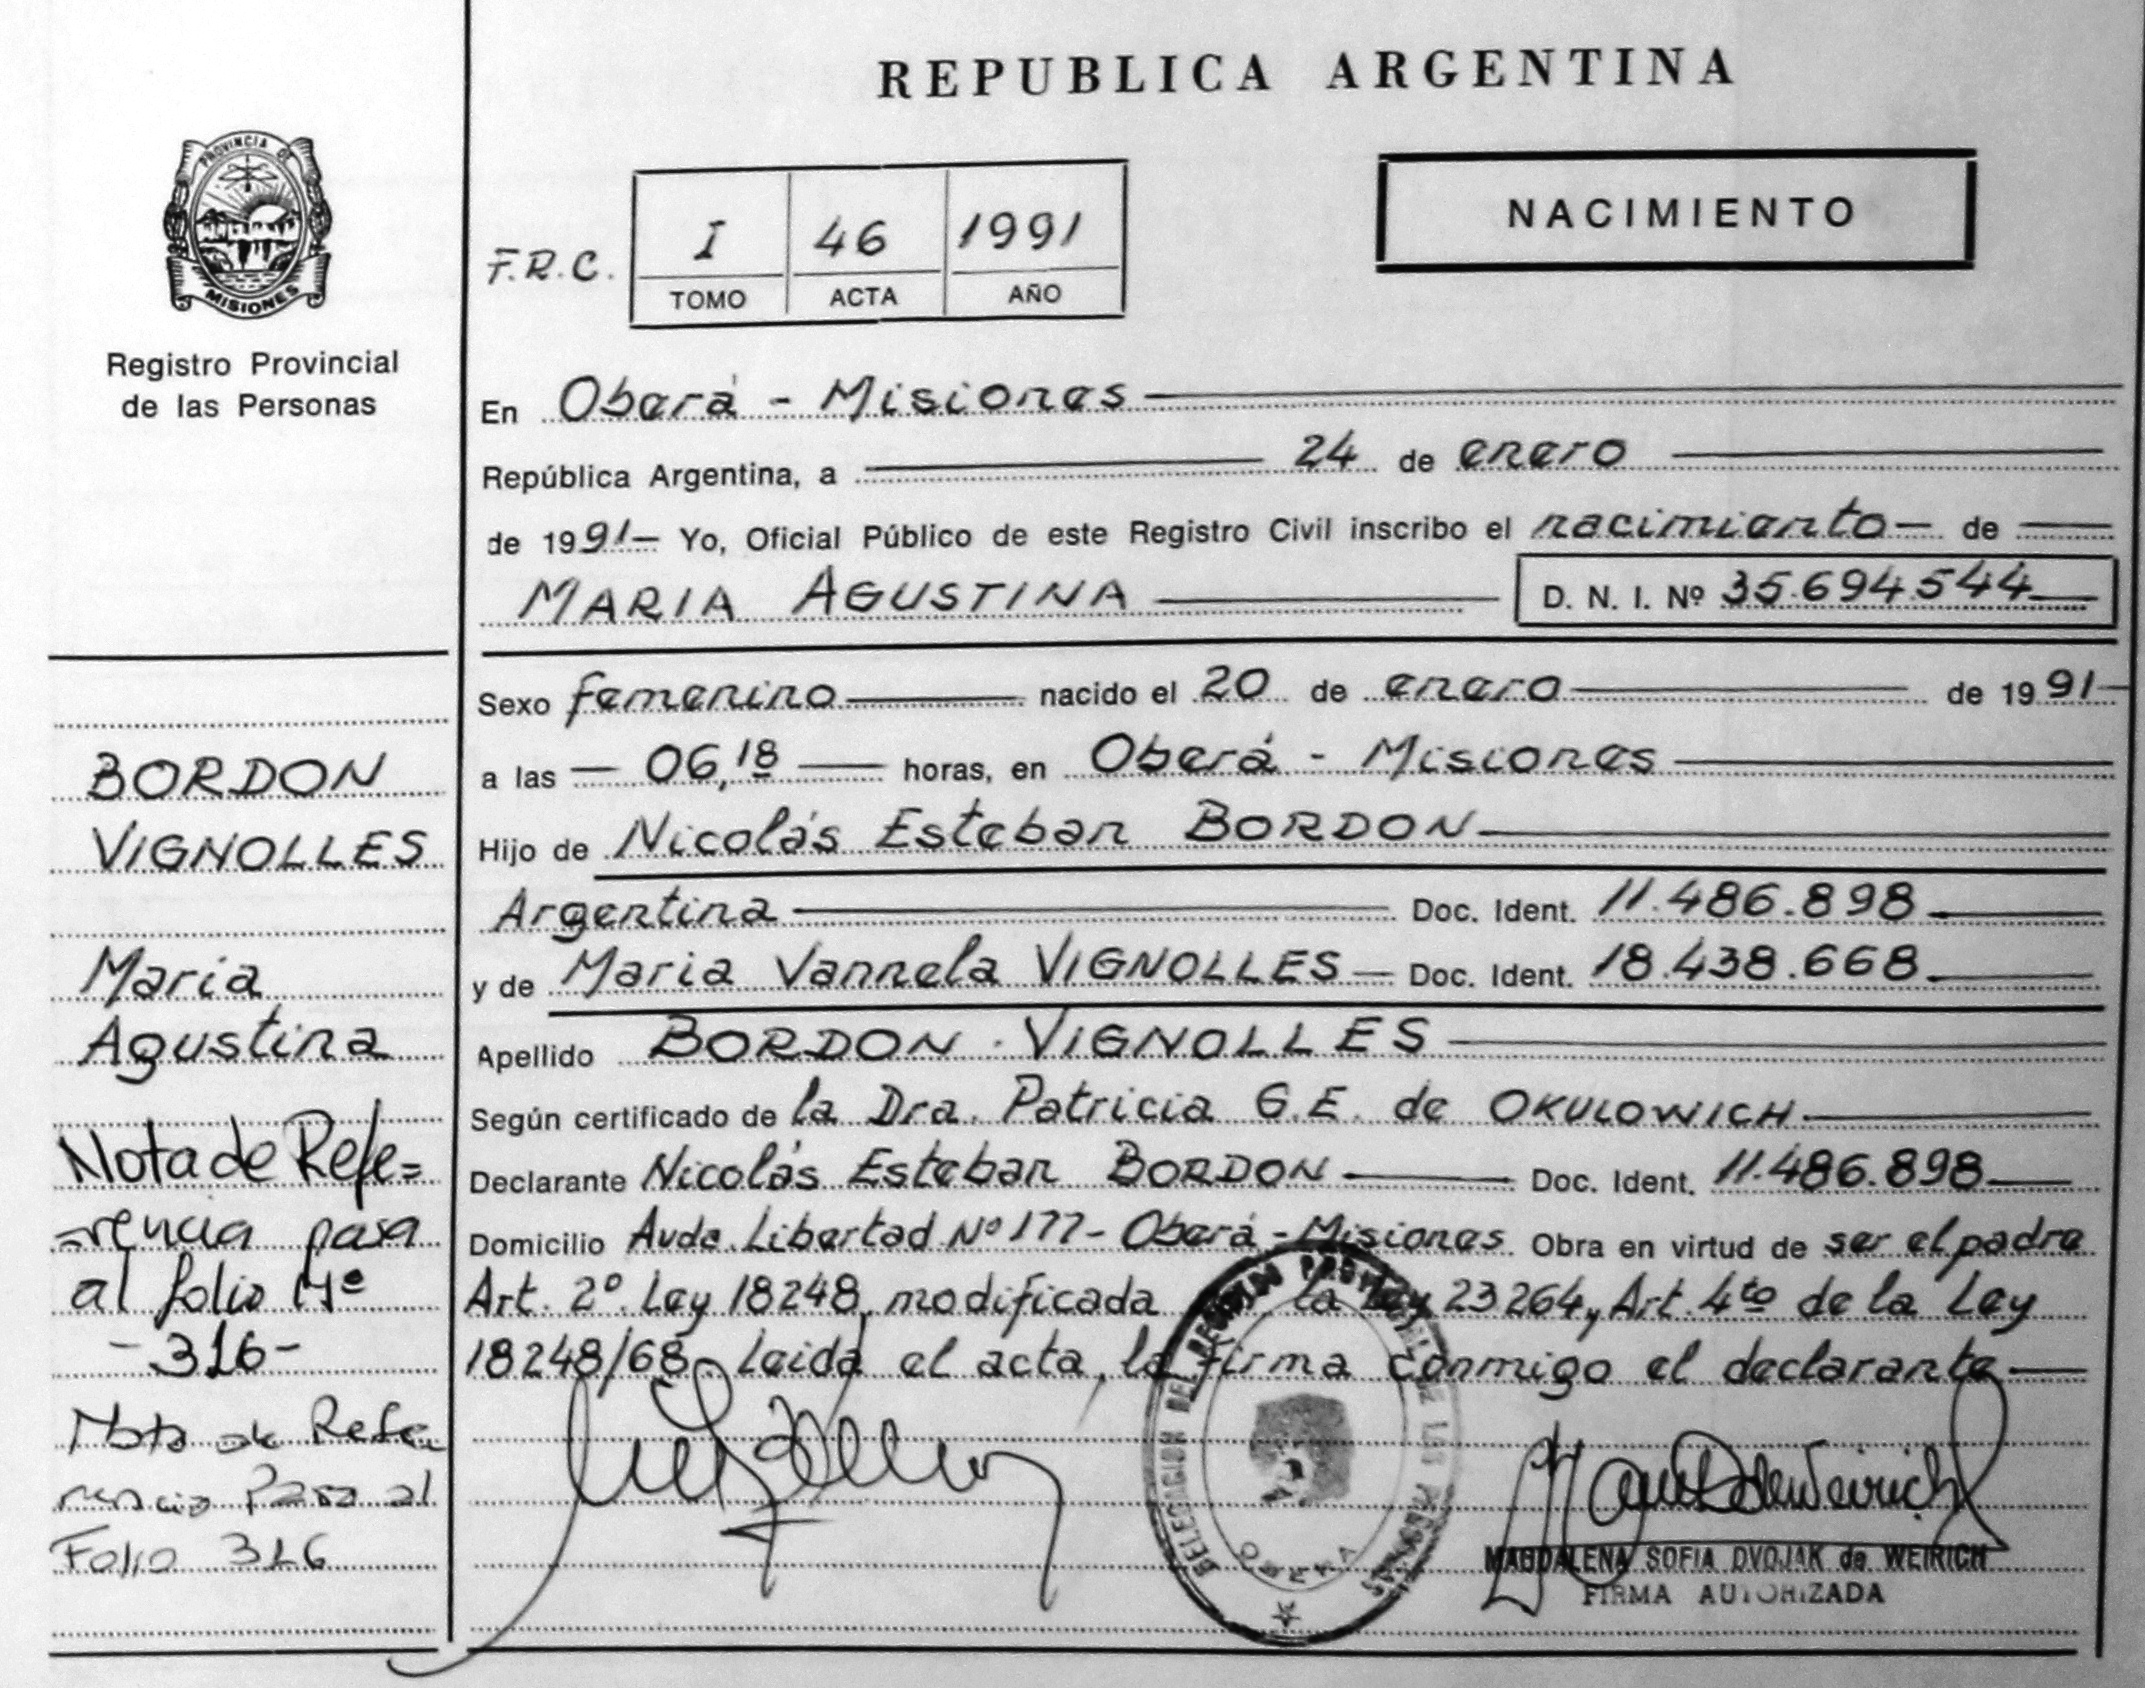 REPUBLICA ARGENTINA
PROVINCIA DE
MISIONES
Registro Provincial
de las Personas
NACIMIENTO
F.R.C. I 46 1991
TOMO ACTA AÑO
En Oberá - Misiones
República Argentina, a 24 de enero
de 1991 Yo, Oficial Público de este Registro Civil inscribo el nacimiento de
MARIA AGUSTINA D. N. I. Nº 35.694.544
Sexo femenino nacido el 20 de enero de 1991
a las 06,18 horas, en Oberá - Misiones
Hijo de Nicolás Esteban BORDON
Argentina Doc. Ident. 11.486.898
y de Maria Vannela VIGNOLLES Doc. Ident. 18.438.668
Apellido BORDON VIGNOLLES
Según certificado de la Dra. Patricia G.E. de OKULOWICH
Declarante Nicolás Esteban BORDON Doc. Ident. 11.486.898
Domicilio Avda. Libertad Nº 177 - Oberá - Misiones. Obra en virtud de ser el padre
Art. 2º Ley 18248, modificada la Ley 23264, Art. 4to de la Ley
18248/68. Leida el acta, la firma conmigo el declarante
BORDON
VIGNOLLES
Maria
Agustina
Nota de Refe=
=rencia pasa
al folio Nº
-316-
Nota de Refe
rencia Pasa al
Folio 316
DELEGACION DEL REGISTRO PROVINCIAL DE LAS PERSONAS
OBERA
MAGDALENA SOFIA DVOJAK de WEIRICH
FIRMA AUTORIZADA